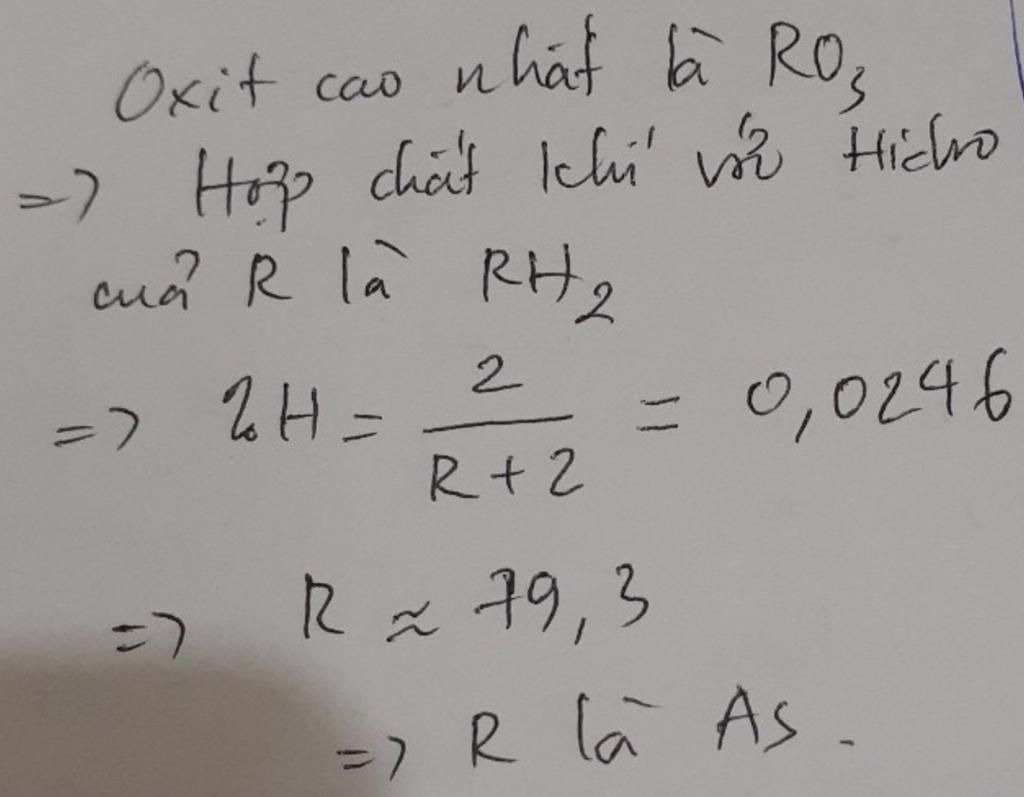 Oxit cao nhất là RO₃
=> Hợp chất khí với Hidro
của R là RH₂
=> %H = 2/(R+2) = 0,0246
=> R ≈ 79,3
=> R là As.